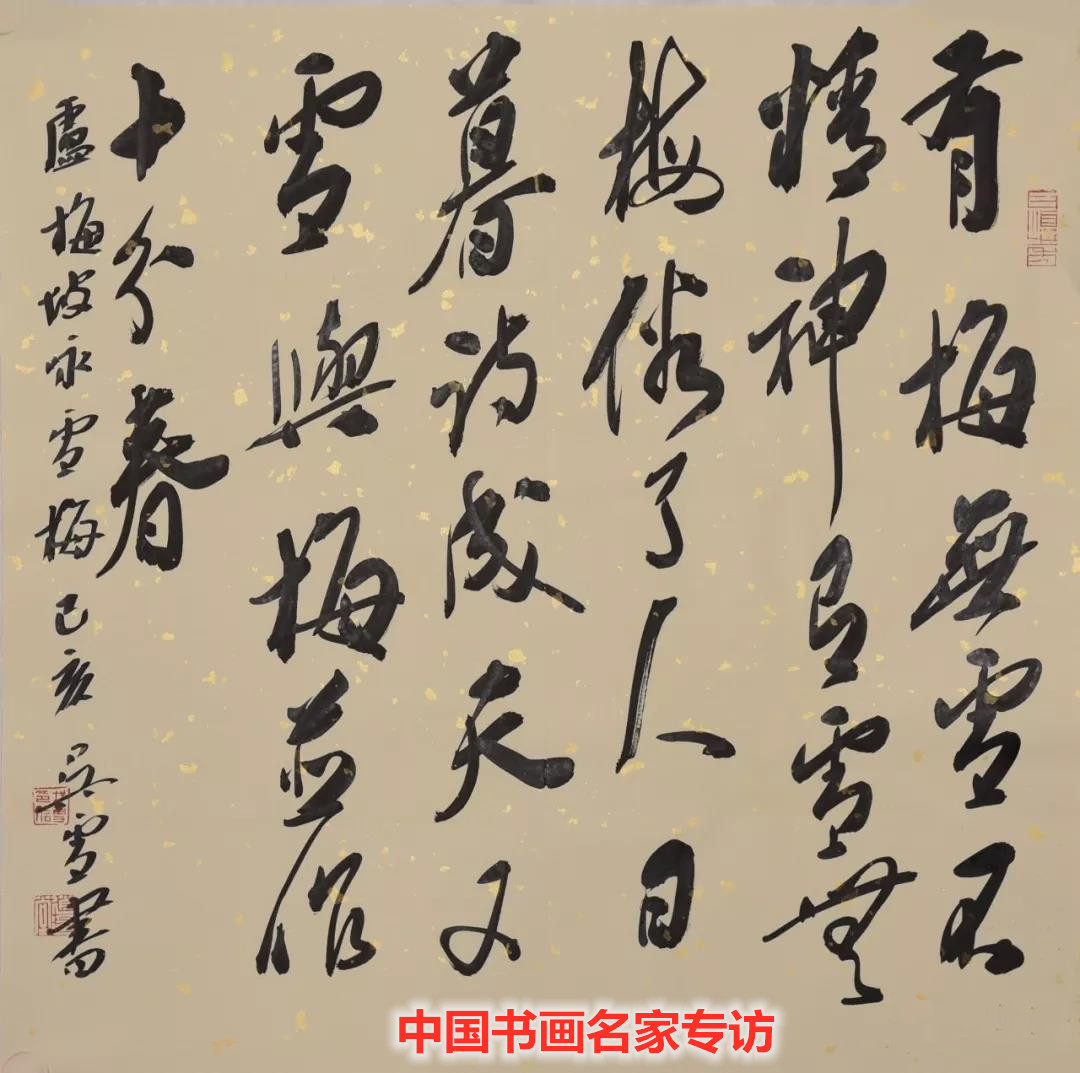 有梅無雪不
精神有雪無
梅俗了人日
暮詩成天又
雪與梅並作
十分春
盧梅坡永雪梅 己亥 吴雪書
中国书画名家专访